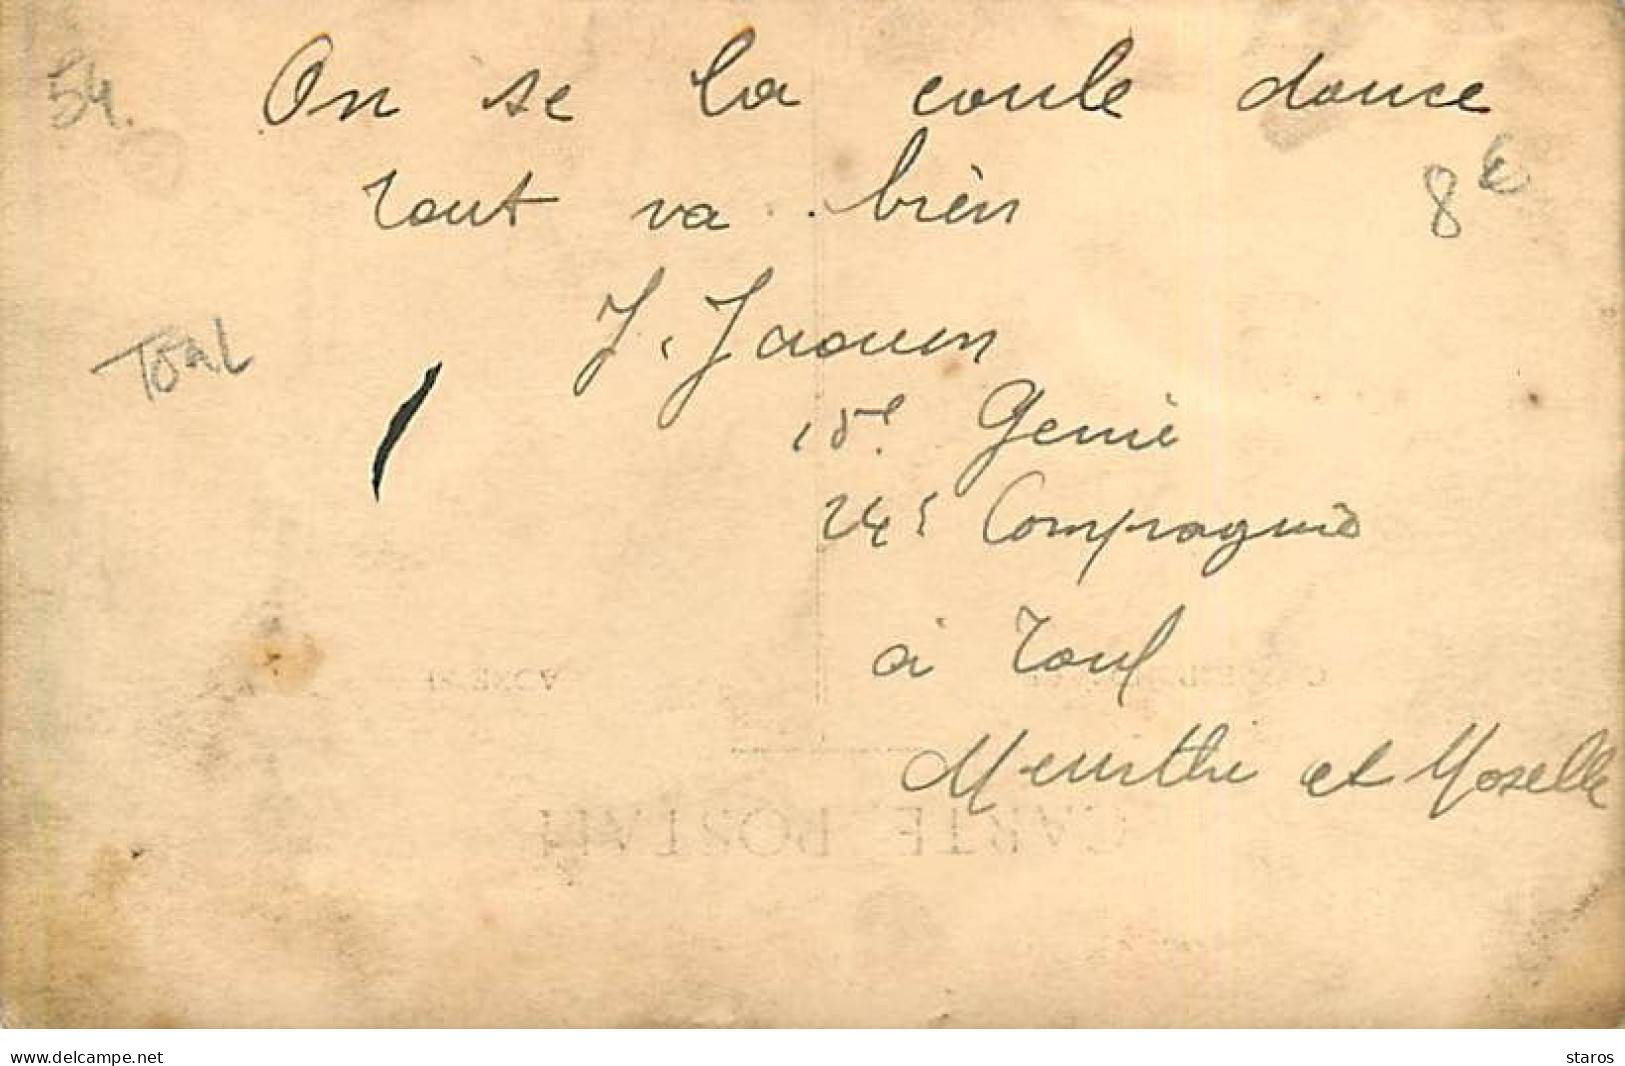 54.
On se la coule douce
Tout va bien
8€
J. Jaouen
TOUL
15e Genie
24e Compagnie
à Toul
Meurthe et Moselle
CARTE POSTALE
www.delcampe.net
staros